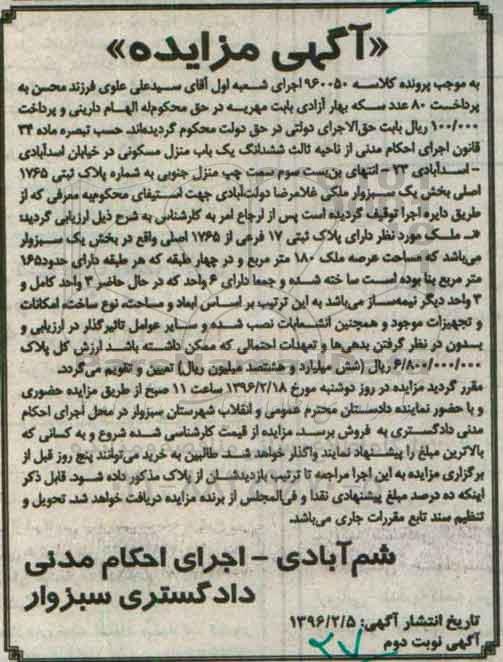 «آگهی مزایده»
به موجب پرونده کلاسه ۹۶۰۰۵۰ اجرای شعبه اول آقای سیدعلی علوی فرزند محسن به
پرداخت ۸۰ عدد سکه بهار آزادی بابت مهریه در حق محکوم‌له الهام دارینی و پرداخت
۱۰۰/۰۰۰ ریال بابت حق‌الاجرای دولتی در حق دولت محکوم گردیده‌اند. حسب تبصره ماده ۳۴
قانون اجرای احکام مدنی از ناحیه ثالث ششدانگ یک باب منزل مسکونی در خیابان اسدآبادی
- اسدآبادی ۲۳ - انتهای بن‌بست سوم سمت چپ منزل جنوبی به شماره پلاک ثبتی ۱۷۶۵
اصلی بخش یک سبزوار ملکی غلامرضا دولت‌آبادی جهت استیفای محکوم‌به معرفی که از
طریق دایره اجرا توقیف گردیده است پس از ارجاع امر به کارشناس به شرح ذیل ارزیابی گردید:
«ـ ملک مورد نظر دارای پلاک ثبتی ۱۷ فرعی از ۱۷۶۵ اصلی واقع در بخش یک سبزوار
می‌باشد که مساحت عرصه ملک ۱۸۰ متر مربع و در چهار طبقه که هر طبقه دارای حدود۱۶۵
متر مربع بنا بوده است سا خته شده و جمعا دارای ۶ واحد که در حال حاضر ۳ واحد کامل و
۳ واحد دیگر نیمه‌ساز می‌باشد به این ترتیب بر اساس ابعاد و مساحت، نوع ساخت، امکانات
و تجهیزات موجود و همچنین انشعابات نصب شده و سایر عوامل تاثیرگذار در ارزیابی و
بدون در نظر گرفتن بدهی‌ها و تعهدات احتمالی که ممکن داشته باشد ارزش کل پلاک
۶/۸۰۰/۰۰۰/۰۰۰ ریال (شش میلیارد و هشتصد میلیون ریال) تعیین و تقویم می‌گردد.
مقرر گردید مزایده در روز دوشنبه مورخ ۱۳۹۶/۲/۱۸ ساعت ۱۱ صبح از طریق مزایده حضوری
و با حضور نماینده دادستان محترم عمومی و انقلاب شهرستان سبزوار در محل اجرای احکام
مدنی دادگستری به فروش برسد. مزایده از قیمت کارشناسی شده شروع و به کسانی که
بالاترین مبلغ را پیشنهاد نمایند واگذار خواهد شد. طالبین به خرید می‌توانند پنج روز قبل از
برگزاری مزایده به این اجرا مراجعه تا ترتیب بازدیدشان از پلاک مذکور داده شود. قابل ذکر
اینکه ده درصد مبلغ پیشنهادی نقدا و فی‌المجلس از برنده مزایده دریافت خواهد شد. تحویل و
تنظیم سند تابع مقررات جاری می‌باشد.
شم‌آبادی - اجرای احکام مدنی
دادگستری سبزوار
تاریخ انتشار آگهی: ۱۳۹۶/۲/۵
آگهی نوبت دوم
۲۷